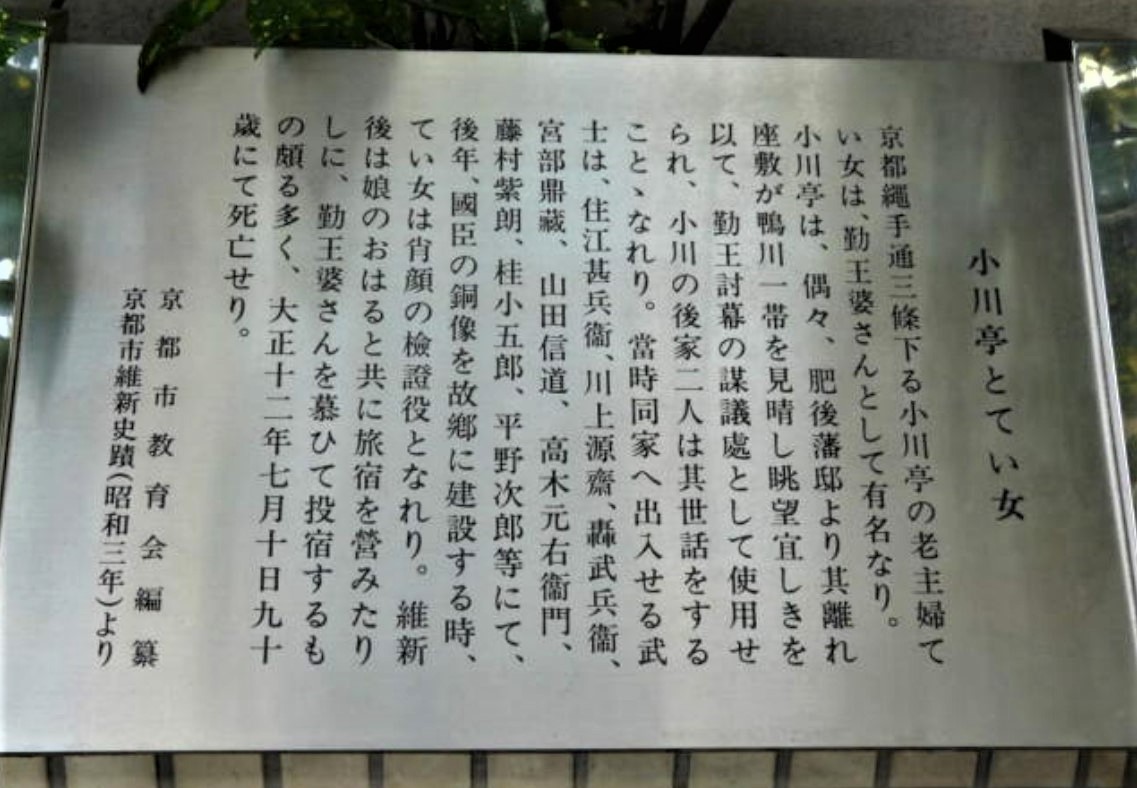 小川亭とてい女
京都繩手通三條下る小川亭の老主婦て
い女は、勤王婆さんとして有名なり。
小川亭は、偶々、肥後藩邸より其離れ
座敷が鴨川一帯を見晴し眺望宜しきを
以て、勤王討幕の謀議處として使用せ
られ、小川の後家二人は其世話をする
ことゝなれり。當時同家へ出入せる武
士は、住江甚兵衞、川上源齋、轟武兵衞、
宮部鼎藏、山田信道、高木元右衞門、
藤村紫朗、桂小五郎、平野次郎等にて、
後年、國臣の銅像を故鄕に建設する時、
てい女は肖顔の檢證役となれり。維新
後は娘のおはると共に旅宿を營みたり
しに、勤王婆さんを慕ひて投宿するも
の頗る多く、大正十二年七月十日九十
歳にて死亡せり。
京都市教育会編纂
京都市維新史蹟(昭和三年)より